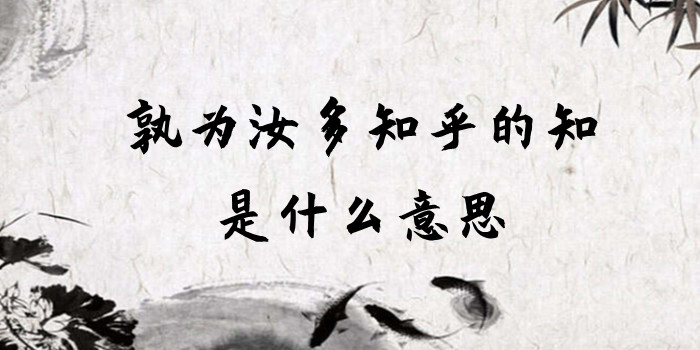 孰为汝多知乎的知
是什么意思